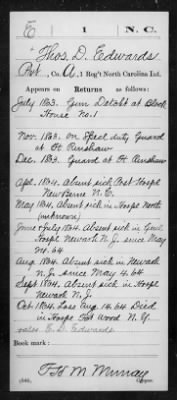 E 1 N.C.
Thos. D. Edwards
Pvt., Co. A, 1 Reg't North Carolina Inf.
Appears on Returns as follows:
July 1863. Gun Detcht at Block
House No. 1
Nov. 1863. on Special duty Guard
at Ft Runshaw
Dec. 1863. Guard at Ft Runshaw
Apl. 1864. Absent sick Post Hospl
New Berne N.C.
May 1864. Absent sick in Hospl North
(unknown)
June & July 1864. Absent sick in Genl
Hospl Newark N.J. since May
24. 64
Aug. 1864. Absent sick in Newark
N.J. since May 4. 64
Sept 1864. Absent sick in Hospl
Newark N.J.
Oct 1864. Loss Aug. 14. 64 Died
in Hospl Fort Wood N.Y.
E. D. Edwards
Book mark:
M. Murray
(546) Copyist.